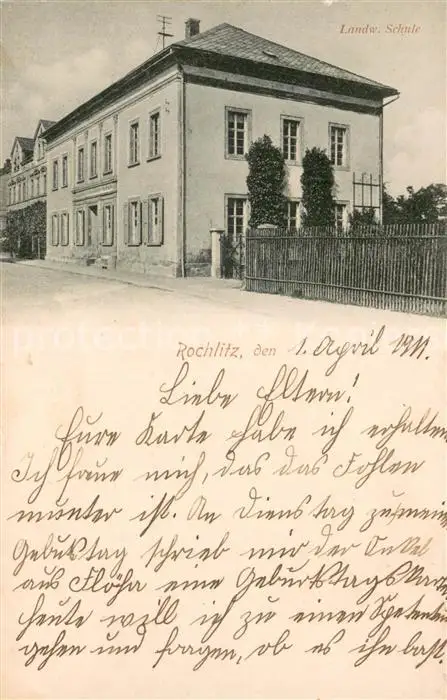 Landw. Schule
Rochlitz, den 1. April 1911.
Liebe Eltern!
Eure Karte habe ich erhalten
Ich freue mich, das das Fohlen
munter ist. An Dienstag zu mein
Gebutstag schrieb mir der Onkel
aus Flöha eine Geburtstagskarte
heute will ich zu einen
gehen und fragen, ob es ihn bast.